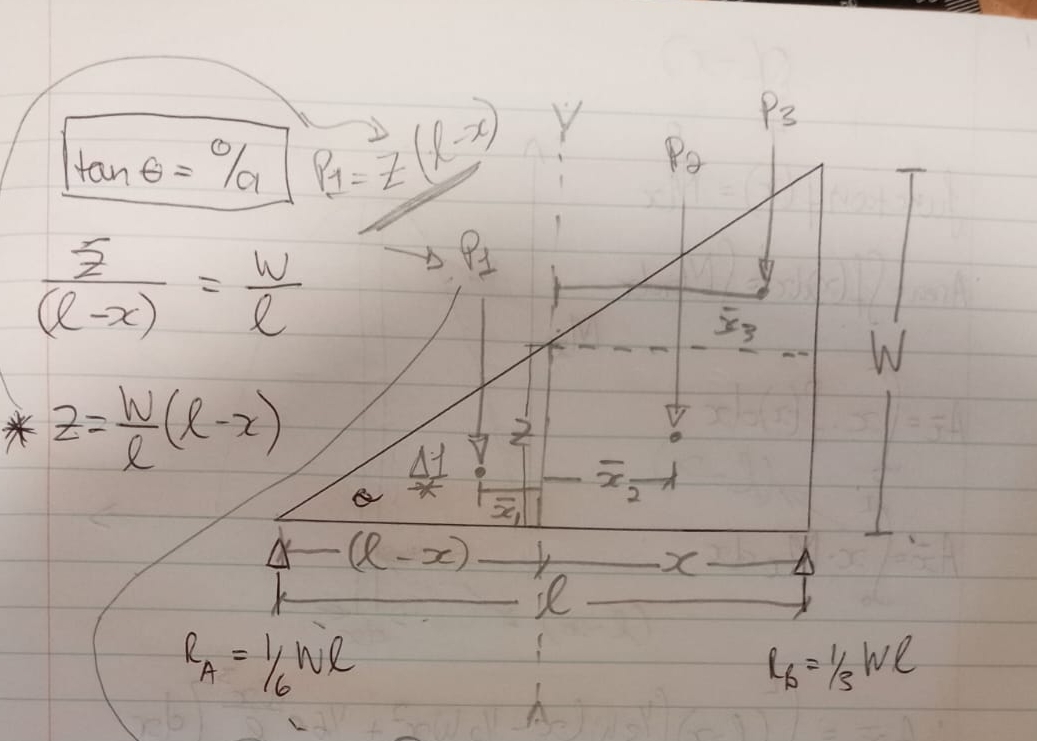 tanθ = o/a
P1 = Z(l-x)
Z̄/(l-x) = W/l
* Z = W/l (l-x)
Y
P3
P2
P1
x̄3
W
Z
Δ1
*
θ
x̄1
x̄2
(l-x)
x
l
RA = 1/6 Wl
Rb = 1/3 Wl